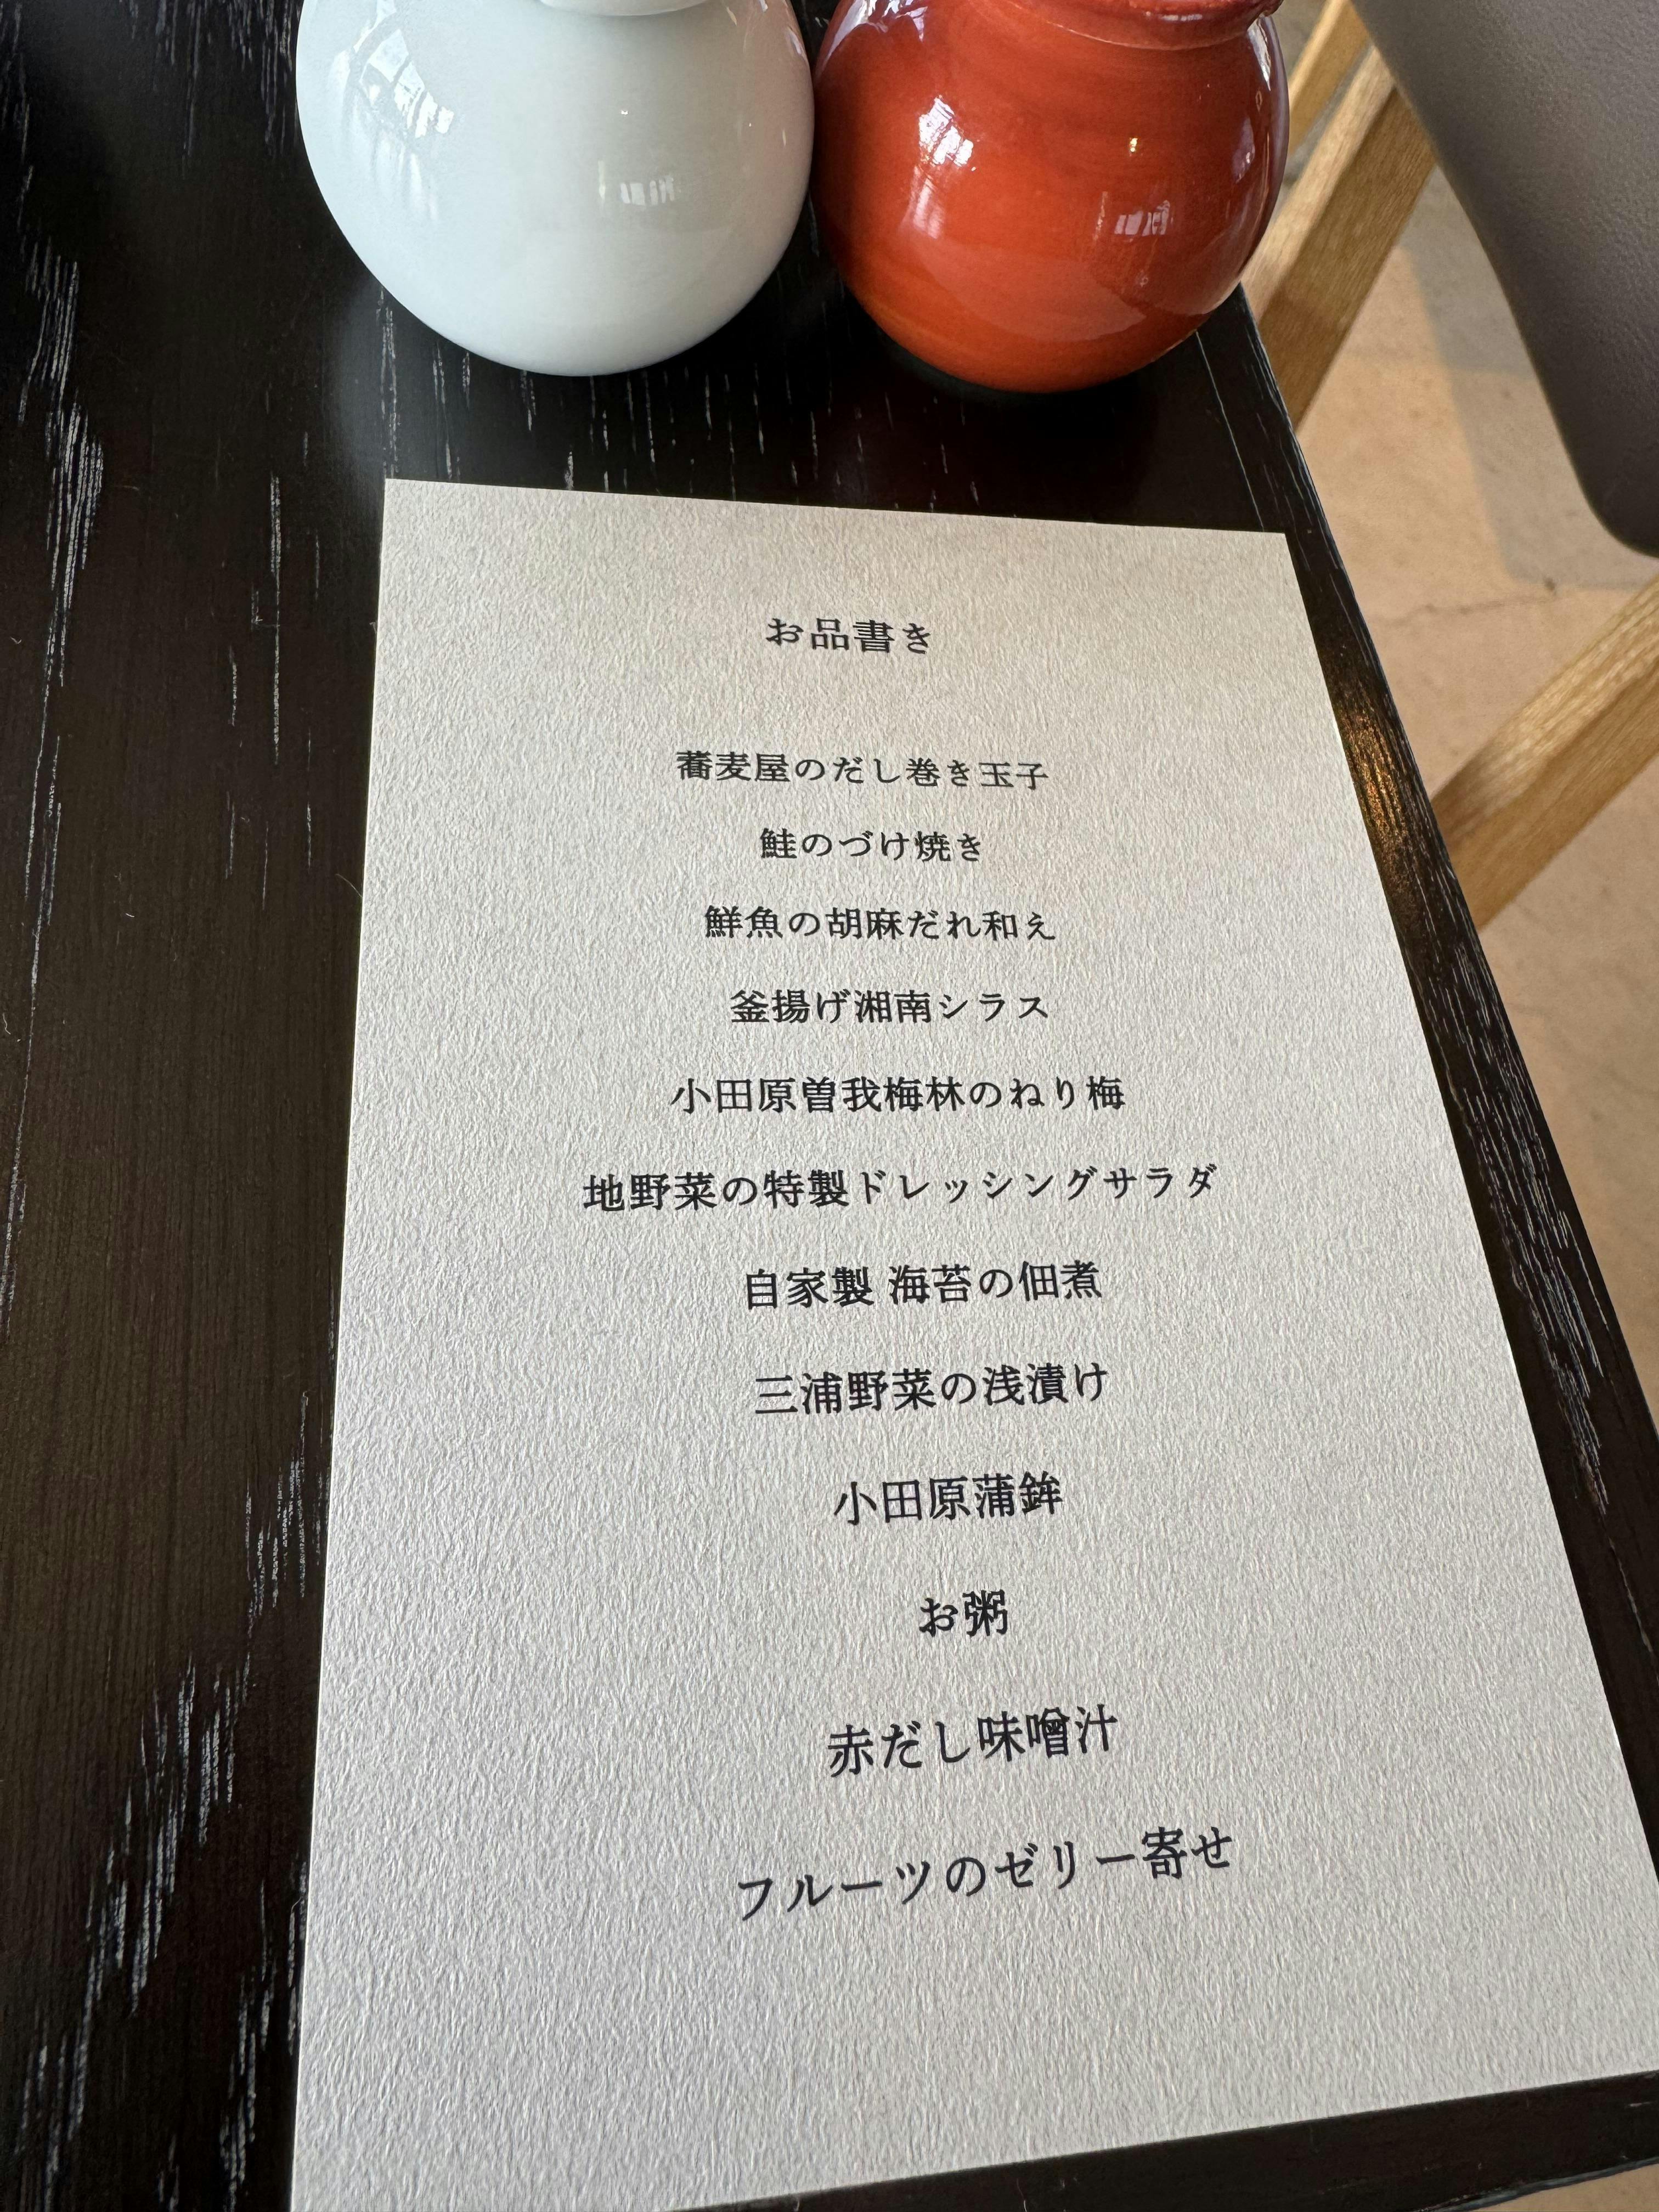 お品書き
蕎麦屋のだし巻き玉子
鮭のづけ焼き
鮮魚の胡麻だれ和え
釜揚げ湘南シラス
小田原曽我梅林のねり梅
地野菜の特製ドレッシングサラダ
自家製 海苔の佃煮
三浦野菜の浅漬け
小田原蒲鉾
お粥
赤だし味噌汁
フルーツのゼリー寄せ